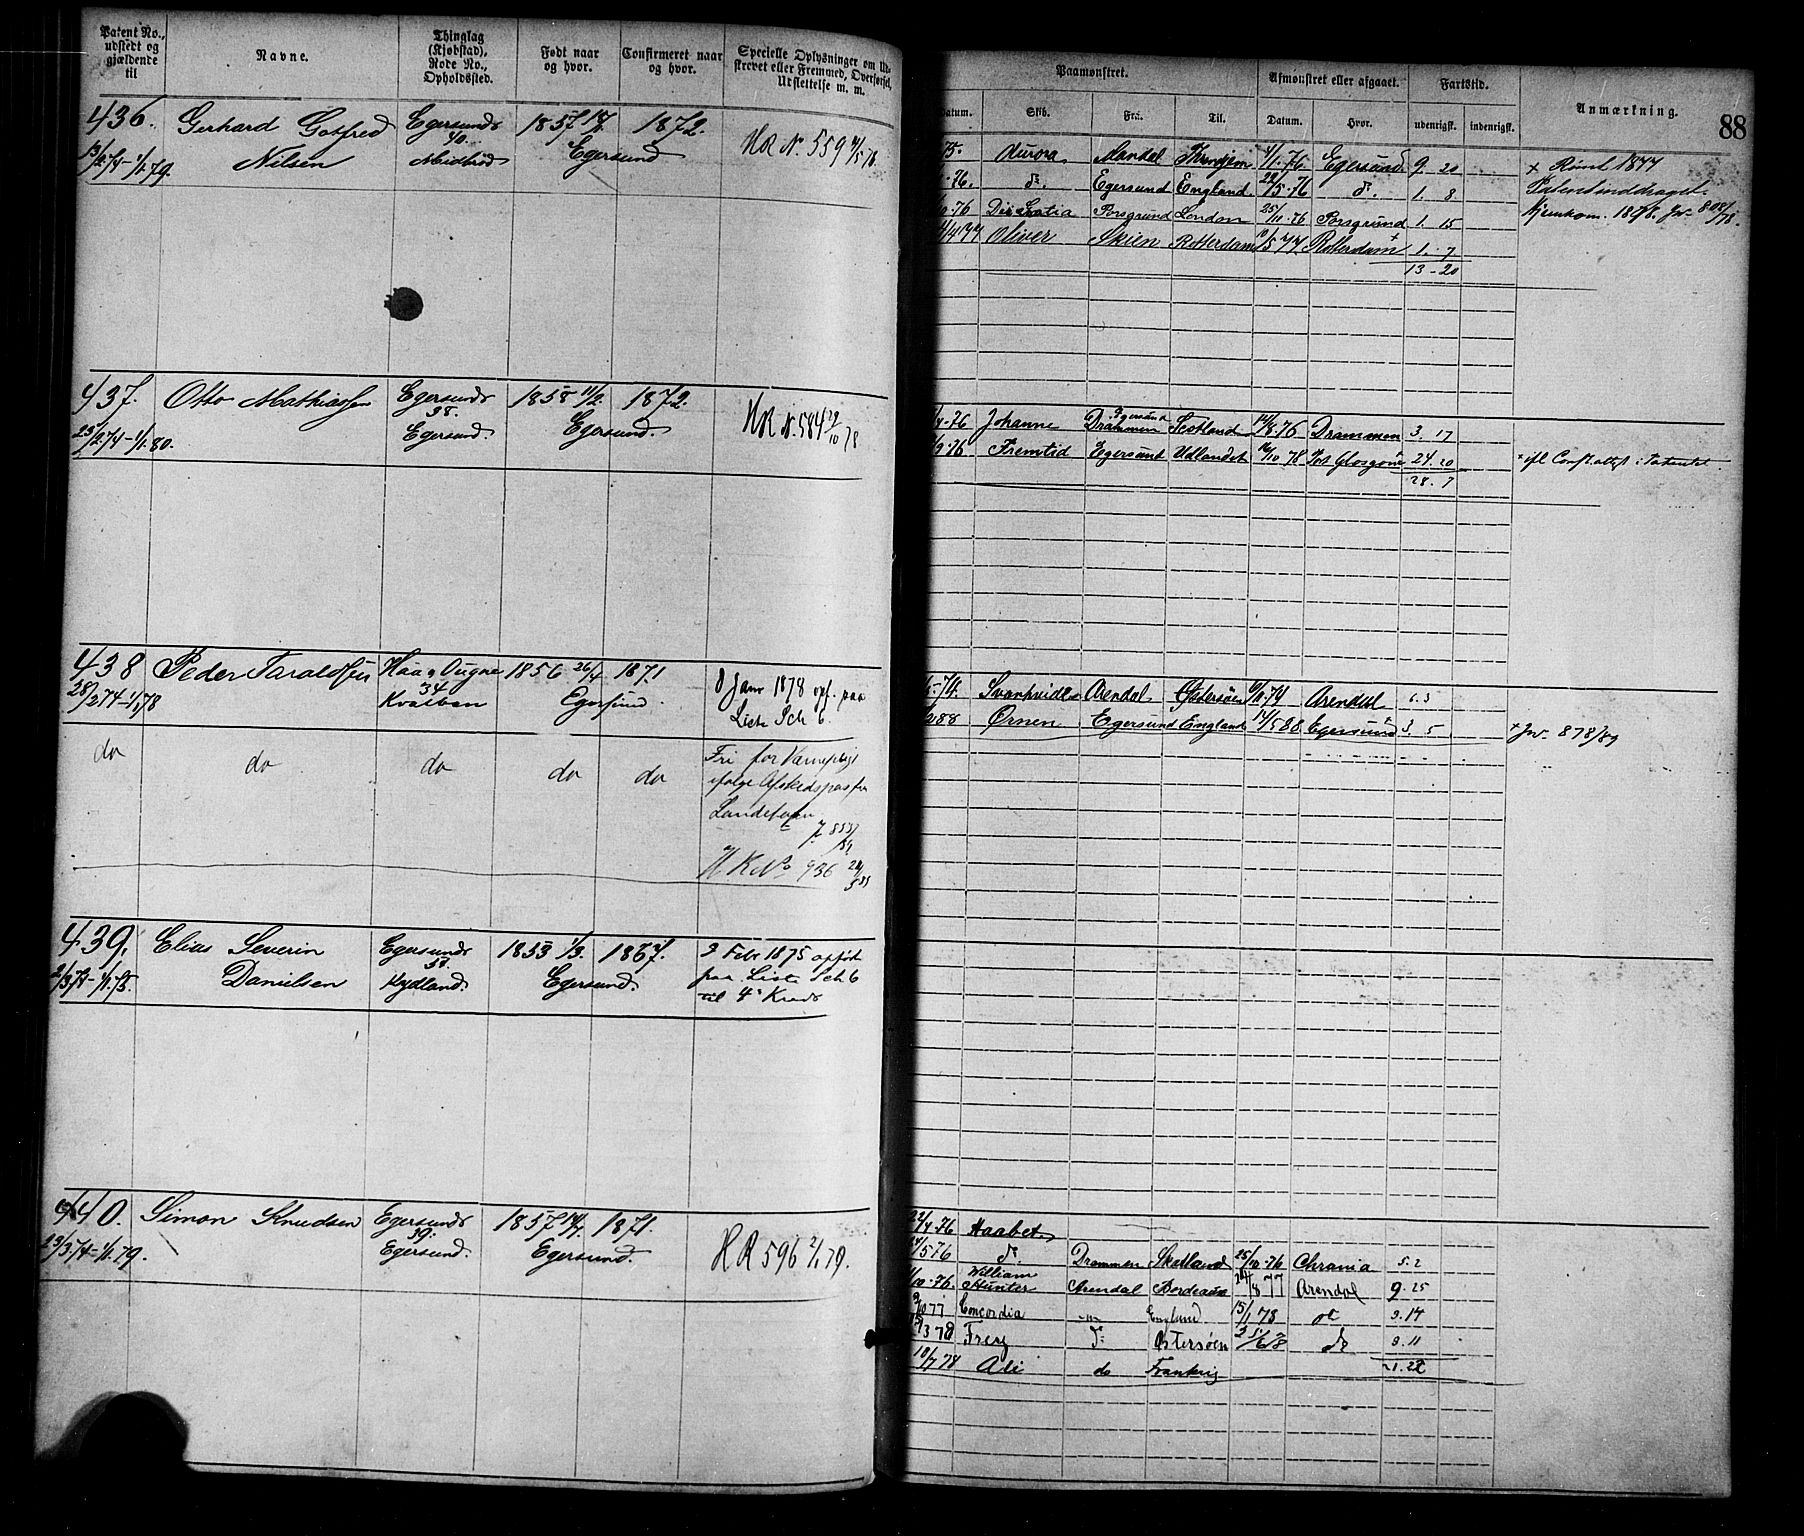 Patent No., udstedt og gjældende til
Navne.
Thinglag (Kjøbstad), Rode No., Opholdssted.
Født naar og hvor.
Confirmeret naar og hvor.
Specielle Oplysninger om Udskrevet eller Fremmed, Overførsel, Udslettelse m. m.
Paamønstret.
Afmønstret eller afgaaet.
Fartstid.
Anmærkning.
88
Datum. Skib. Fra. Til. Datum. Hvor. udenrigsk. indenrigsk.
436. Gerhard Gotfred Egersunds 1857 1872.
Nilsen 40. Egersund
3/2 74-1/1.79.
HR No. 559
75. Aurora Mandal 4/1.76 Egersund 9. 20
.76. do. Egersund England 22/5.76 do. 1. 8.
.76 Porsgrund London 25/11.76 Porsgrund 1. 15
Oliver Skien Rotterdam Rotterdam + 1. 7
13-20
+ Rømt 1877
Patent inddraget.
437. Otto Mathiassen Egersunds 1858 11/2. 1872.
38.
Egersund. Egersund.
23/2 74-1/1.80.
HR No. 584 29/10 78
.76 Johanne Drammen Egersund Scotland 14/8.76 Drammen 3. 17
.76 Fremtid Egersund Udlandet 78 24. 20
28. 7
438 Peder Taraldsen Haa og Ougne 1856 26/4 1871
34
Kvalben Egersund.
28/2 74-1/1 78
8 Janr 1878 opf. paa
Liste Sch 6.
.74. Svanhvide Arendal Østersøen 74 Arendal 6. 3
88 Ørnen Egersund England 14/5 88 Egersund 3. 5
+ Jr. 878/89
do do do do do
Fri for Værnepligt
ifølge Afskedspas fra
Landetaten
HR No 936
439. Elias Severin Egersunds 1853 1/3. 1867.
Danielsen 58. Egersund.
Hydland.
2/3 74-1/1.75.
2 Febr 1875 opført
paa Liste Sch 6
til 4de Kreds
440. Simon Knudsen Egersunds 1857 14/4 1871.
39.
Egersund. Egersund.
23/3 74-1/1.79.
HR 596 2/1 79.
22/4.76 Haabet
/5 76 do. Drammen Skotland 25/10.76 Chrania 5. 2
/10.76. William Hunter Arendal Bordeaux 24/8 77 Arendal 9. 25
77 Concordia -"- England 15/1 78 do 3. 14
/3 78 Frey do. Østersøen do 3. 11
10/7 78 Adi do Frankrig